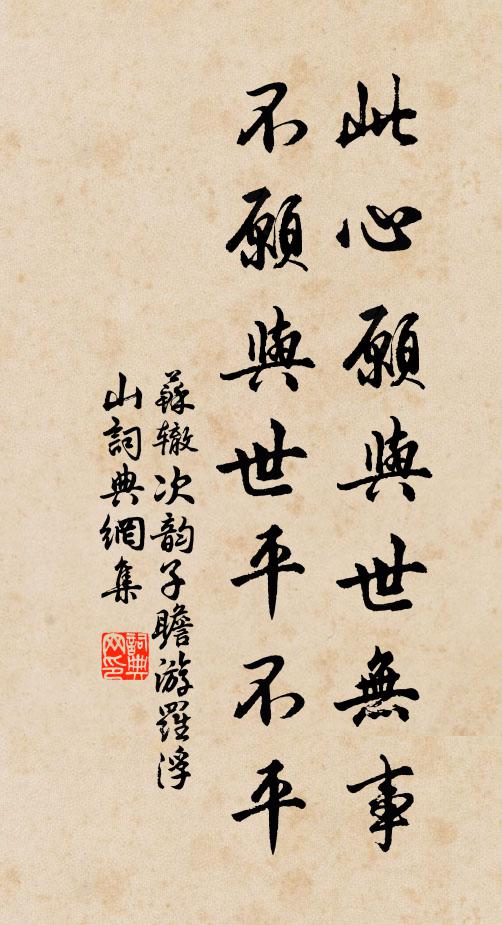 此心願與世無事
不願與世平不平
蘇轍次韵子瞻游羅浮
山詞典網集
詞典
网印